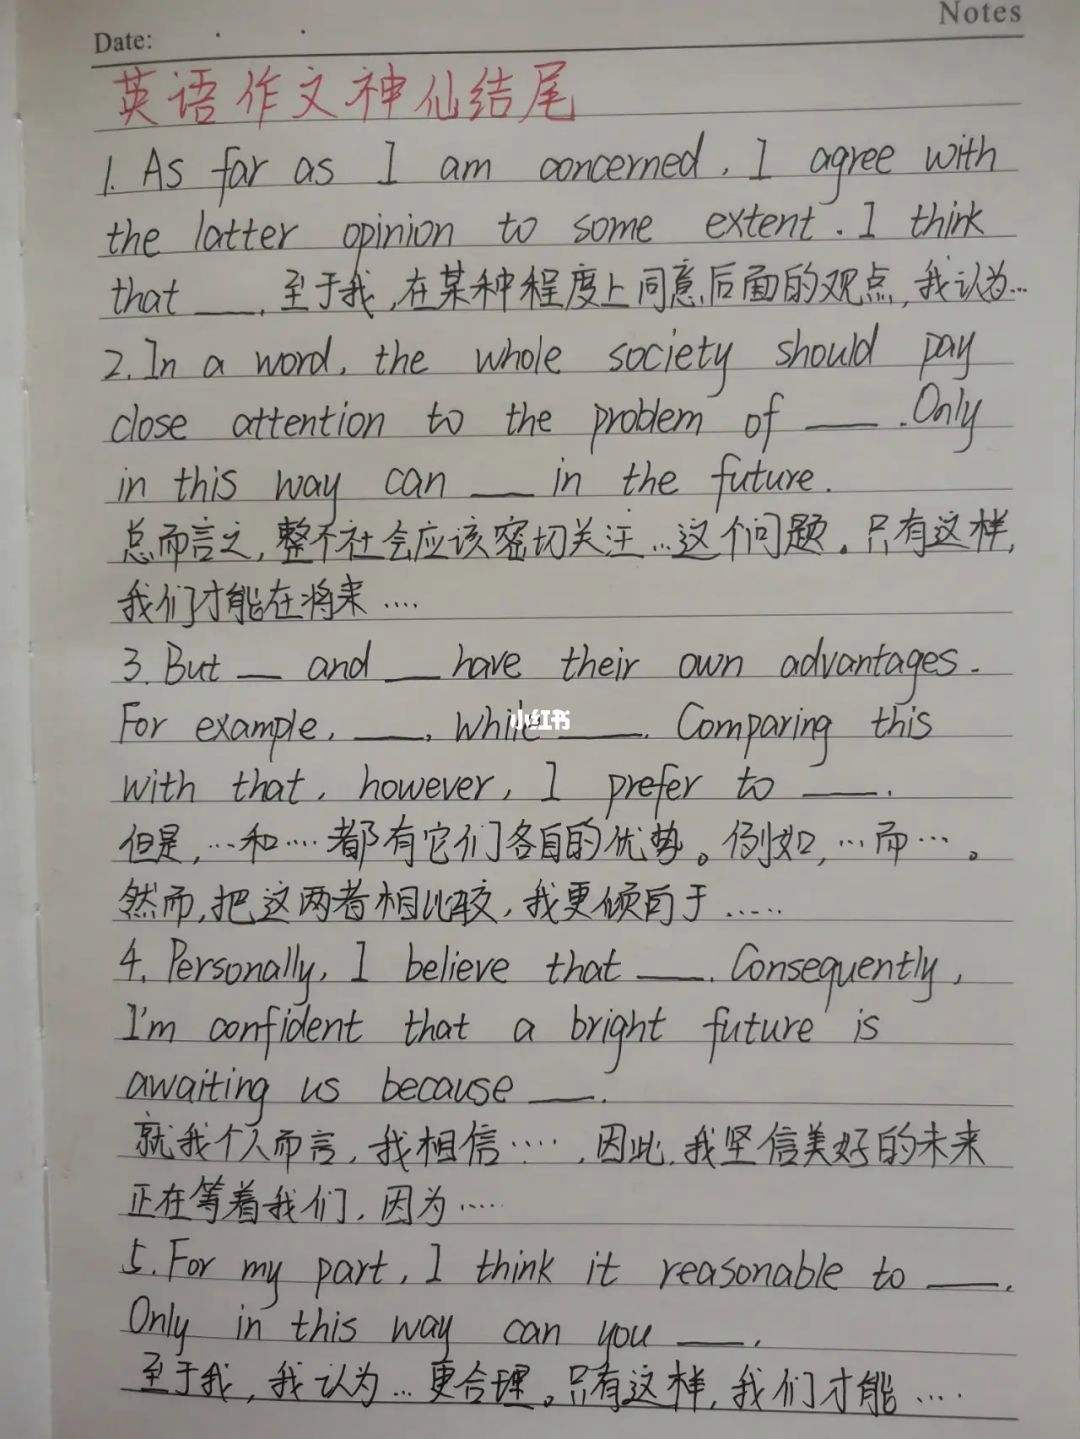 Notes
Date:
英语作文神仙结尾
1. As far as I am concerned, I agree with
the latter opinion to some extent. I think
that ___. 至于我,在某种程度上同意后面的观点,我认为...
2. In a word, the whole society should pay
close attention to the problem of ___. Only
in this way can ___ in the future.
总而言之,整个社会应该密切关注...这个问题。只有这样,
我们才能在将来....
3. But __ and ___ have their own advantages.
For example, ___, while ___. Comparing this
小红书
with that, however, I prefer to ___.
但是,...和....都有它们各自的优势。例如,...而...。
然而,把这两者相比较,我更倾向于......
4. Personally, I believe that ___. Consequently,
I'm confident that a bright future is
awaiting us because ___.
就我个人而言,我相信.....,因此,我坚信美好的未来
正在等着我们,因为.....
5. For my part, I think it reasonable to ___.
Only in this way can you ___.
至于我,我认为...更合理。只有这样,我们才能....